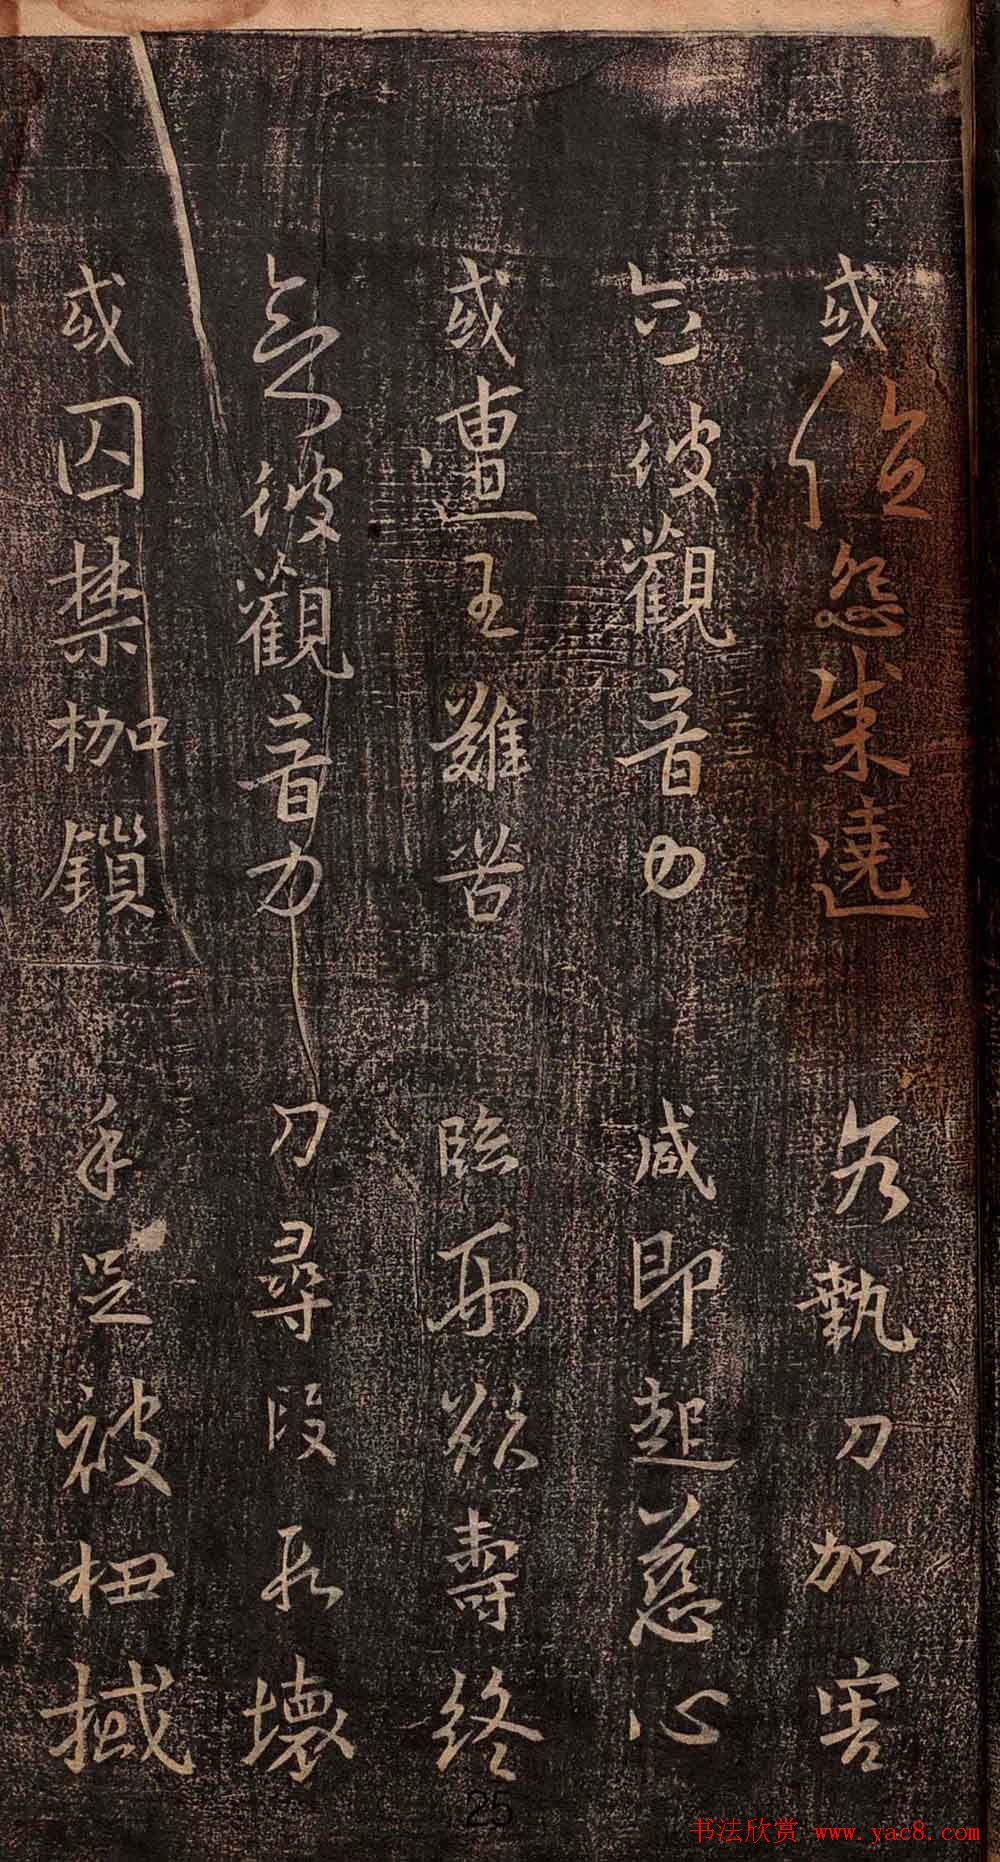 或值怨賊遶 各執刀加害
念彼觀音力 咸即起慈心
或遭王難苦 臨刑欲壽終
念彼觀音力 刀尋段段壞
或囚禁枷鎖 手足被杻械
25
书法欣赏 www.yac8.com